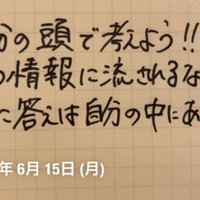 分の頭で考えよう!!
の情報に流されるな
た答えは自分の中にあ
年 6月 15日 (月)